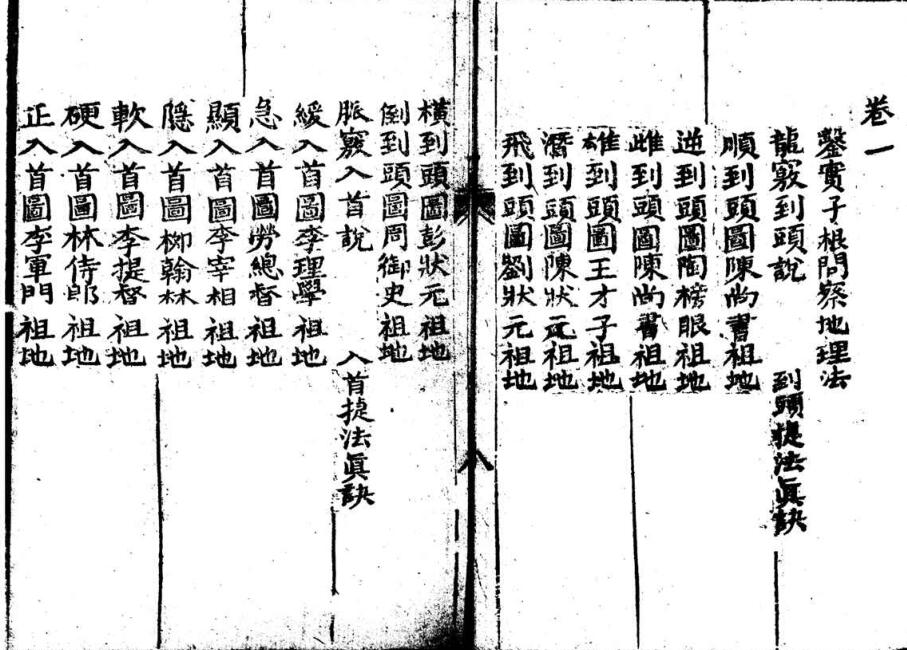 卷一
鑿實子根問察地理法
龍竅到頭說 到頭提法眞訣
順到頭圖陳尚書祖地
逆到頭圖陶榜眼祖地
雌到頭圖陳尚書祖地
雄到頭圖王才子祖地
潛到頭圖陳狀元祖地
飛到頭圖劉狀元祖地
八
橫到頭圖彭狀元祖地
倒到頭圖周御史祖地
脈竅入首說 入首提法眞訣
緩入首圖李理學祖地
急入首圖勞總督祖地
顯入首圖李宰相祖地
隱入首圖柳翰林祖地
軟入首圖李提督祖地
硬入首圖林侍郎祖地
正入首圖李軍門祖地